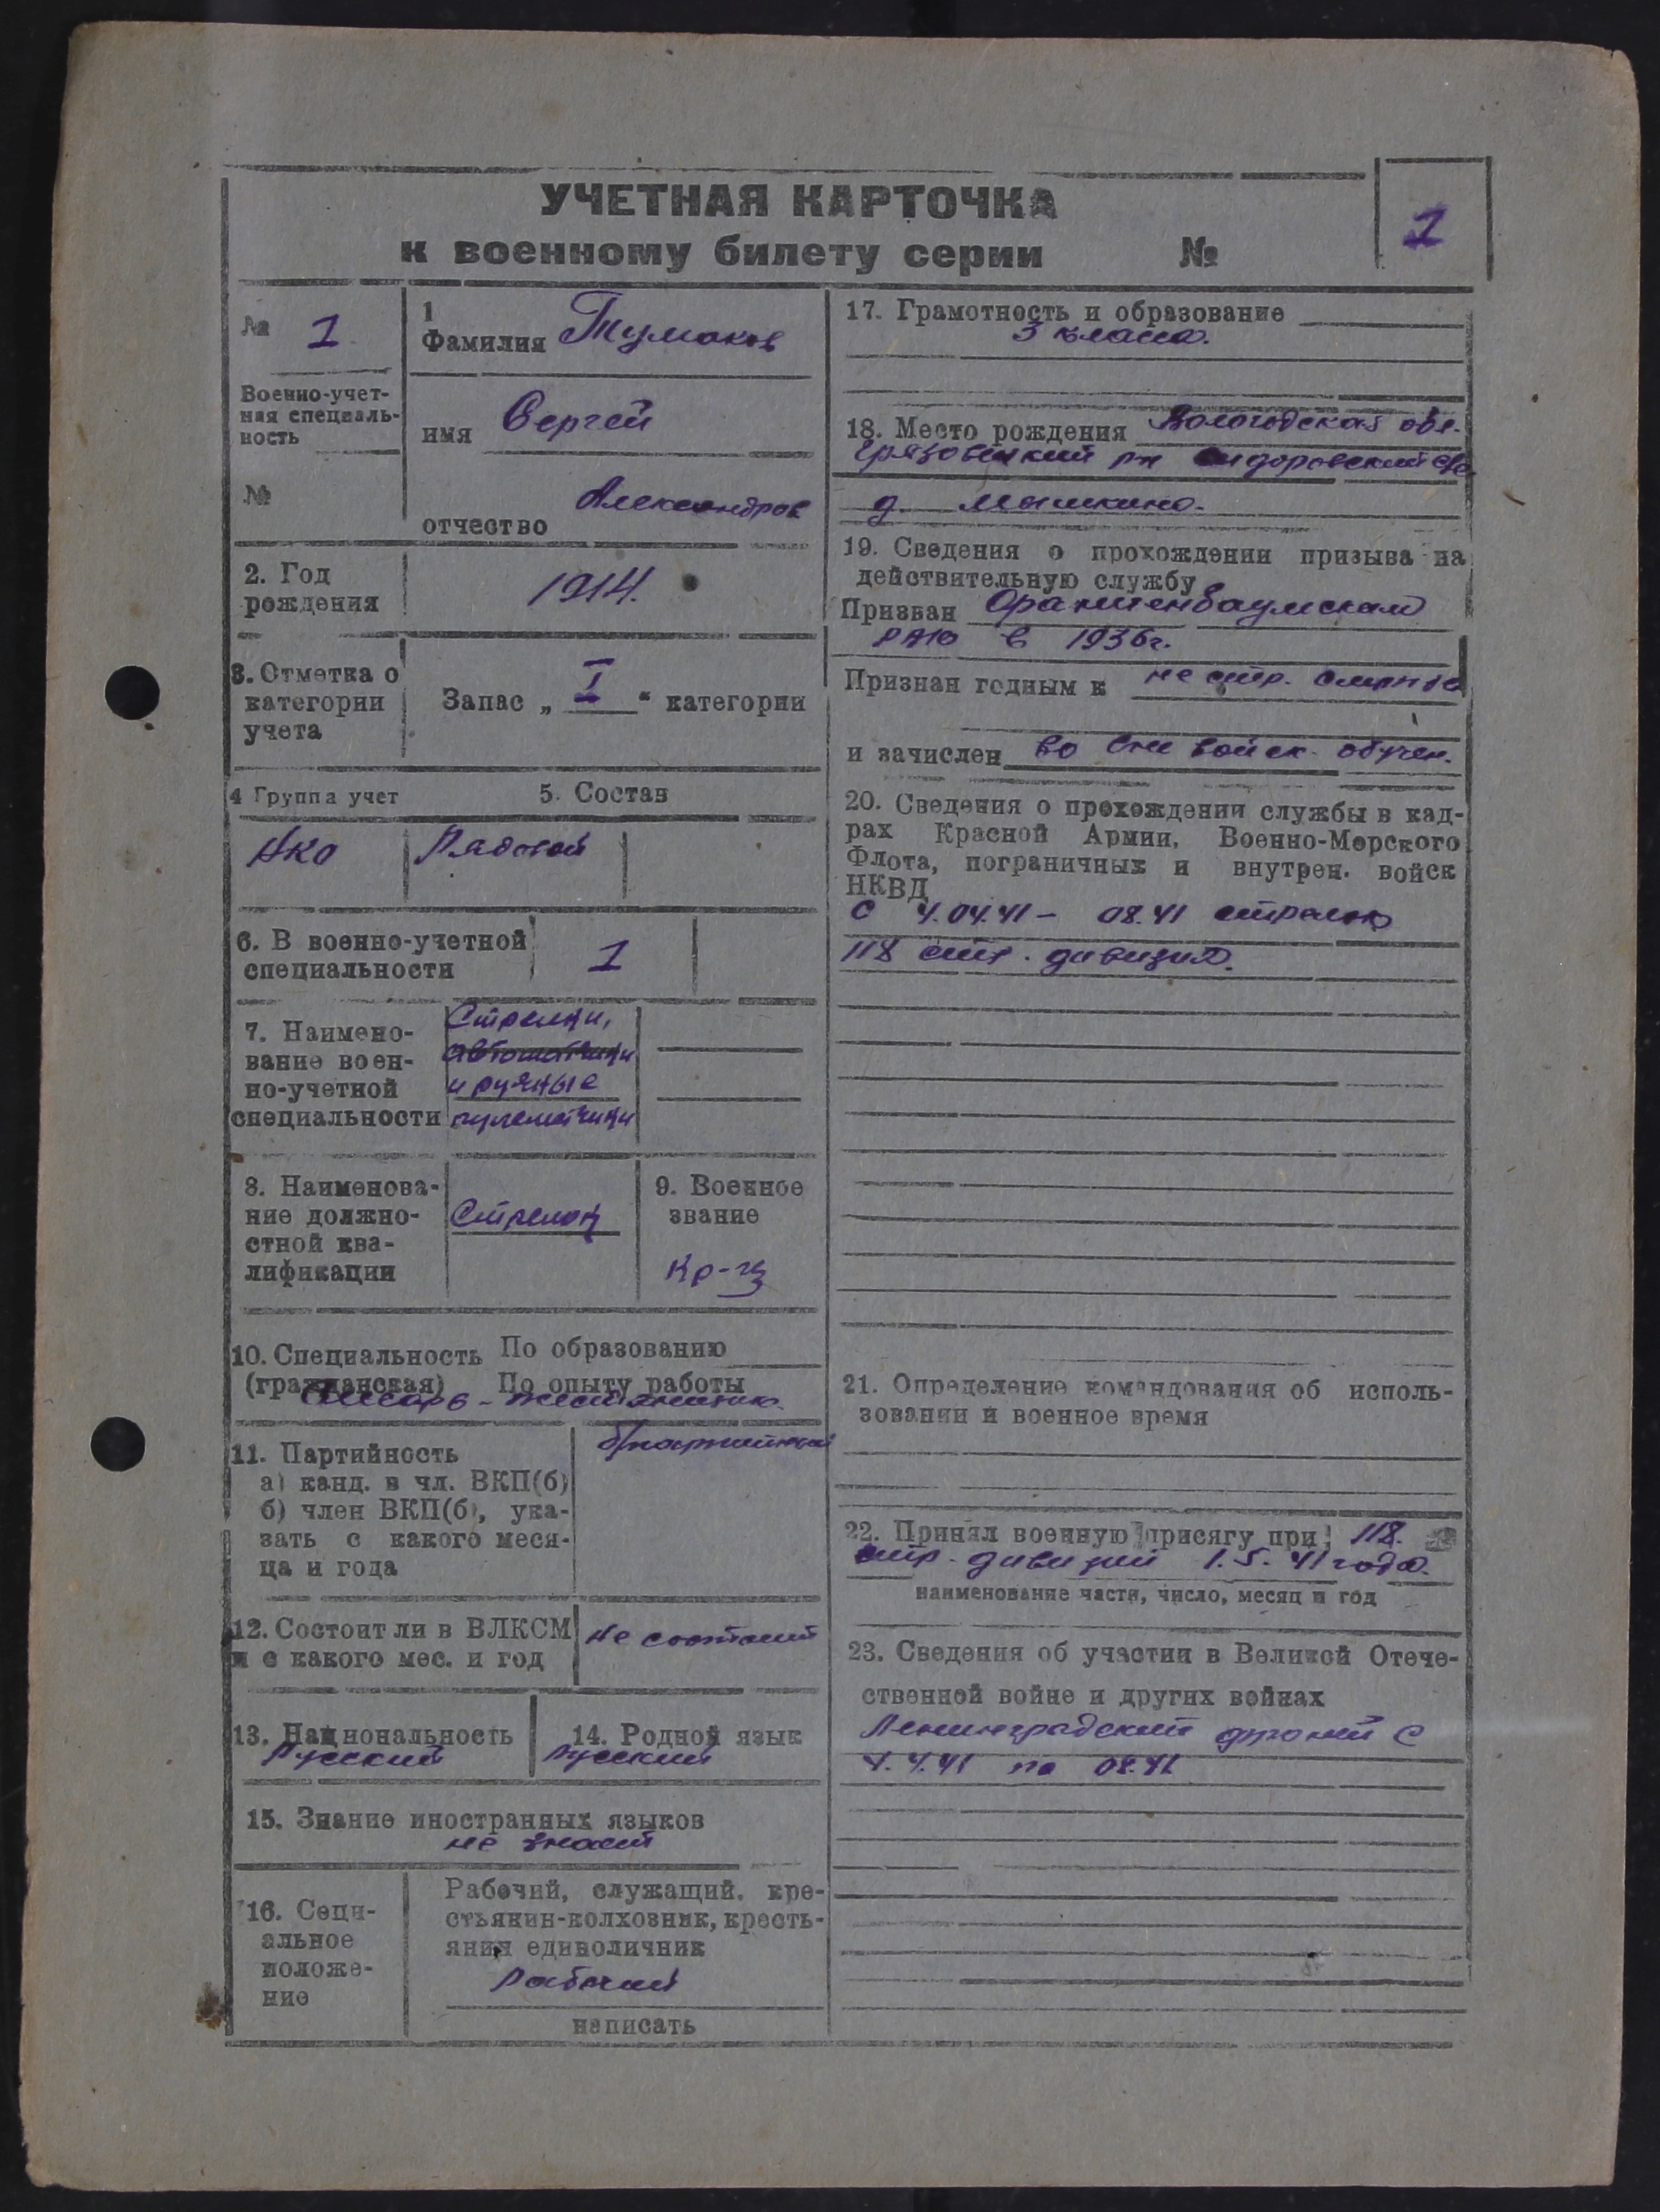 УЧЕТНАЯ КАРТОЧКА
к военному билету серии №
1
№ 1
Военно-учет-
ная специаль-
ность
№
1
Фамилия Тумаков
имя Сергей
отчество Александров
2. Год
рождения
1914.
3. Отметка о
категории
учета
Запас „ I “ категории
4 Группа учет
5. Состав
НКО
Рядовой
6. В военно-учетной
специальности
1
7. Наимено-
вание воен-
но-учетной
специальности
Стрелки,
автоматчики
и ручные
пулеметчики
8. Наименова-
ние должно-
стной ква-
лификации
Стрелок
9. Военное
звание
Кр-ц
10. Специальность По образованию
(гражданская) По опыту работы
Слесарь - жестянщик.
11. Партийность
а) канд. в чл. ВКП(б)
б) член ВКП(б), ука-
зать с какого меся-
ца и года
б/партийный
12. Состоит ли в ВЛКСМ
и с какого мес. и год
не состоит
13. Национальность
Русский
14. Родной язык
Русский
15. Знание иностранных языков
не знает
16. Соци-
альное
положе-
ние
Рабочий, служащий, кре-
стьянин-колхозник, кресть-
янин единоличник
Рабочий
написать
17. Грамотность и образование
3 класса.
18. Место рождения Вологодская обл.
Грязовецкий рн Сидоровский с/с
д. Машкино.
19. Сведения о прохождении призыва на
действительную службу
Призван Ораниенбаумским
в 1936г.
Признан годным к не стр. службе
и зачислен во вне войск. обучен.
20. Сведения о прохождении службы в кад-
рах Красной Армии, Военно-Морского
Флота, пограничных и внутрен. войск
НКВД
с 4.04.41 - 08.41 стрелок
118 стр. дивизия.
21. Определение командования об исполь-
зовании и военное время
22. Принял военную присягу при 118.
стр. дивизии 1.5.41 года.
наименование части, число, месяц и год
23. Сведения об участии в Великой Отече-
ственной войне и других войнах
Ленинградский фронт с
4.4.41 по 08.41